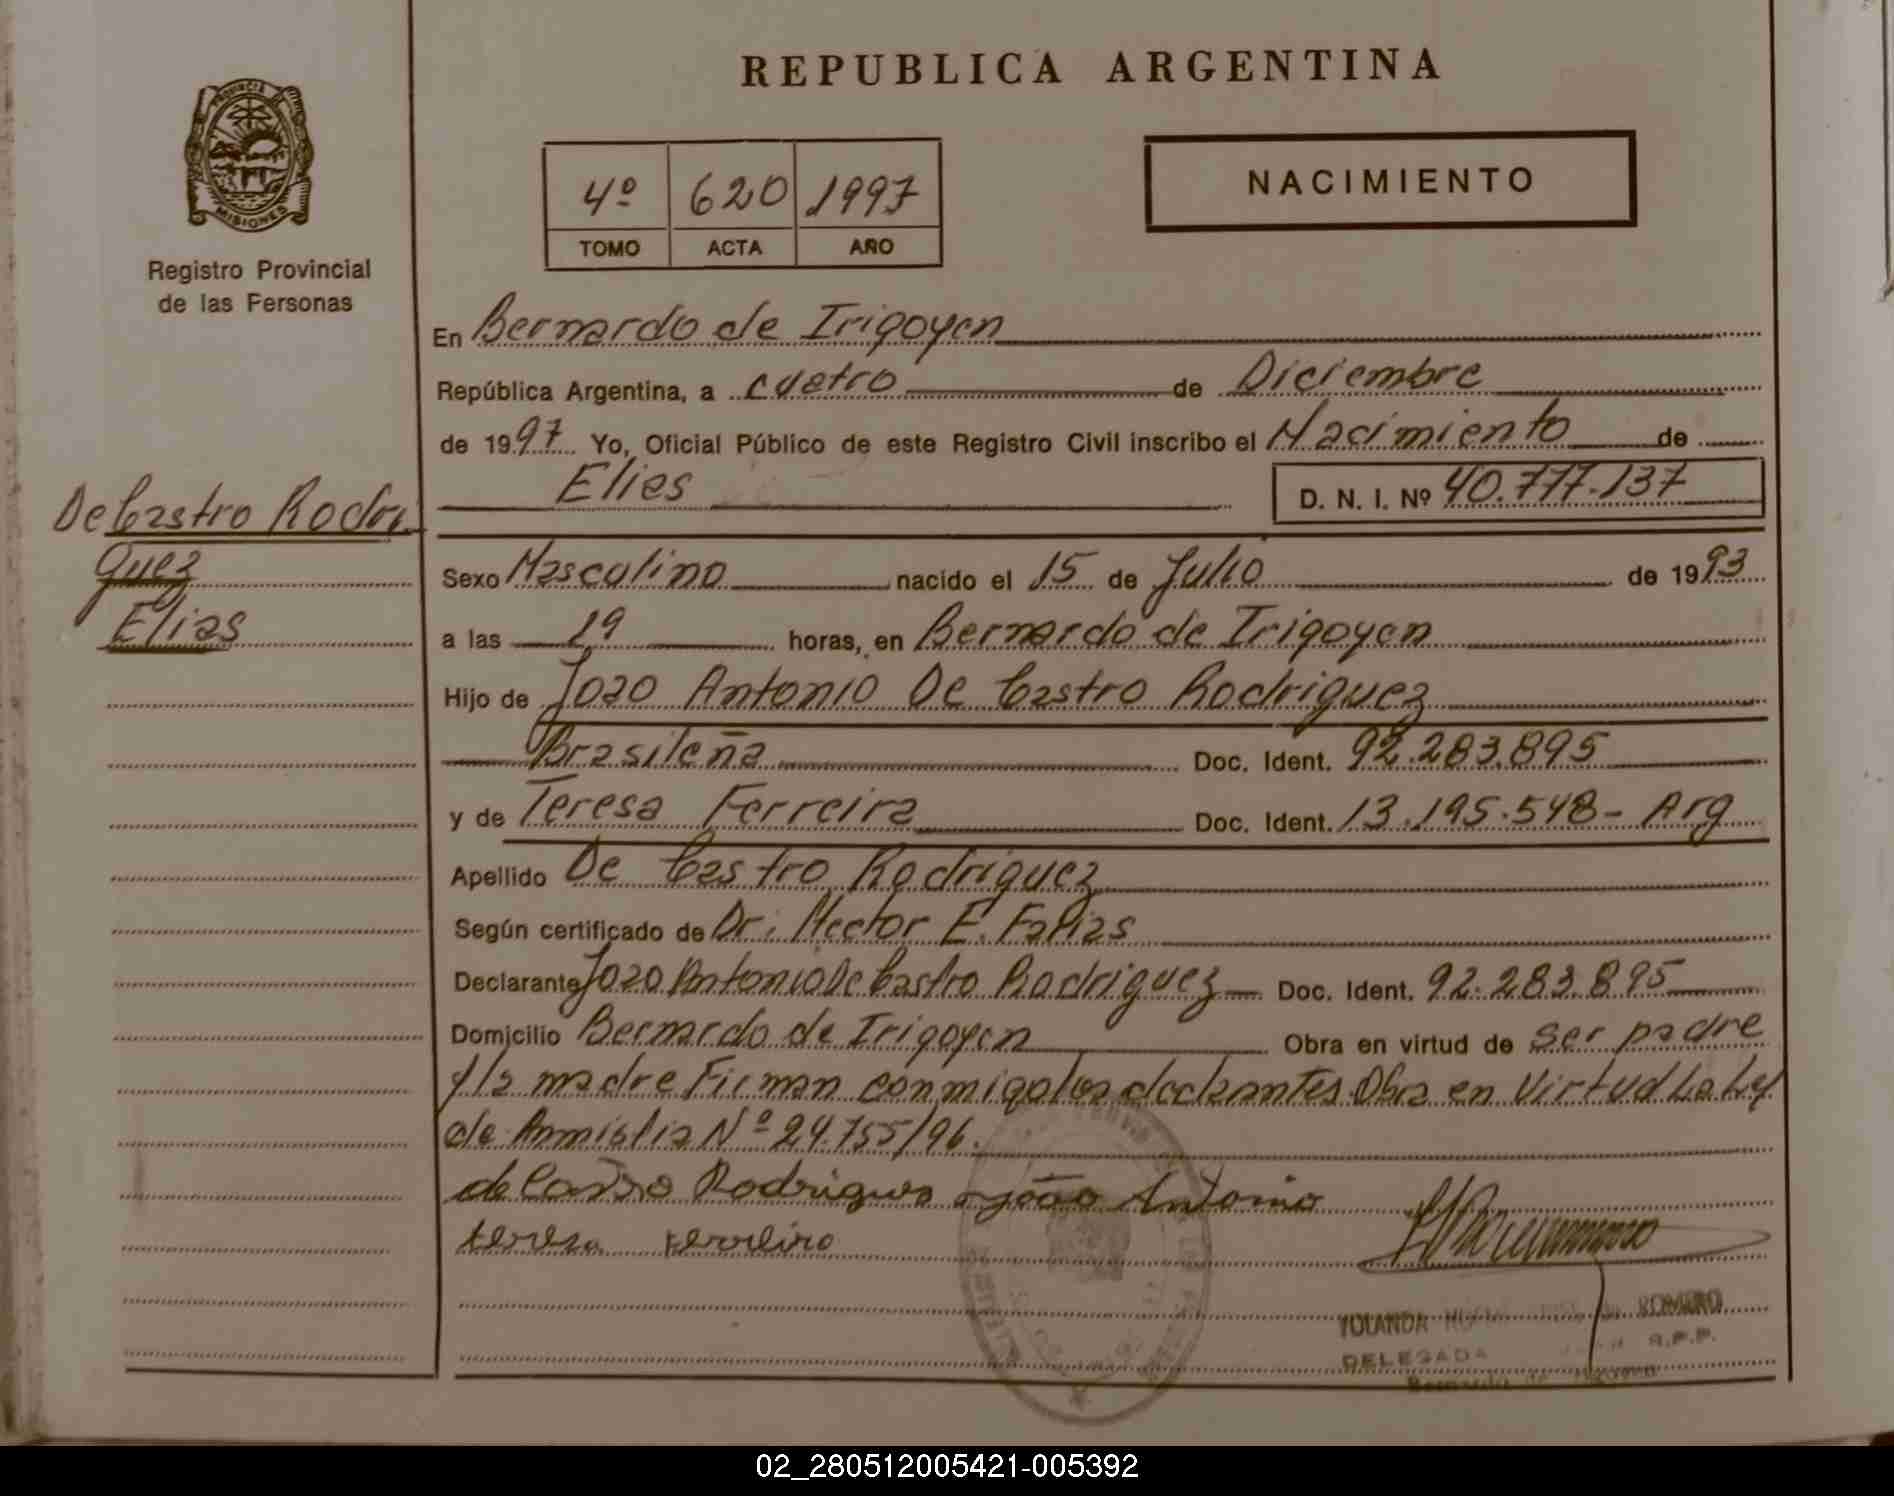 REPUBLICA ARGENTINA
PROVINCIA DE
MISIONES
Registro Provincial
de las Personas
4º 620 1997
TOMO ACTA AÑO
NACIMIENTO
En Bernardo de Irigoyen
República Argentina, a cuatro de Diciembre
de 1997 Yo, Oficial Público de este Registro Civil inscribo el Nacimiento de
Elias
D. N. I. Nº 40.777.137
De Castro Rodri
guez
Elias
Sexo Masculino nacido el 15 de Julio de 1993
a las 19 horas, en Bernardo de Irigoyen
Hijo de Joao Antonio De Castro Rodriguez
Brasileña Doc. Ident. 92.283.895
y de Teresa Ferreira Doc. Ident. 13.195.548- Arg
Apellido De Castro Rodriguez
Según certificado de Dr: Hector E. Farias
Declarante Joao Antonio De Castro Rodriguez Doc. Ident. 92.283.895
Domicilio Bernardo de Irigoyen Obra en virtud de ser padre
y la madre Firman conmigo los declarantes Obra en Virtud La Ley
de Amnistia Nº 24.755/96.
de Castro Rodrigues João Antonio
tereza ferreira
YOLANDA ROMERO
DELEGADA R.P.P.
Bernardo de Irigoyen
02_280512005421-005392